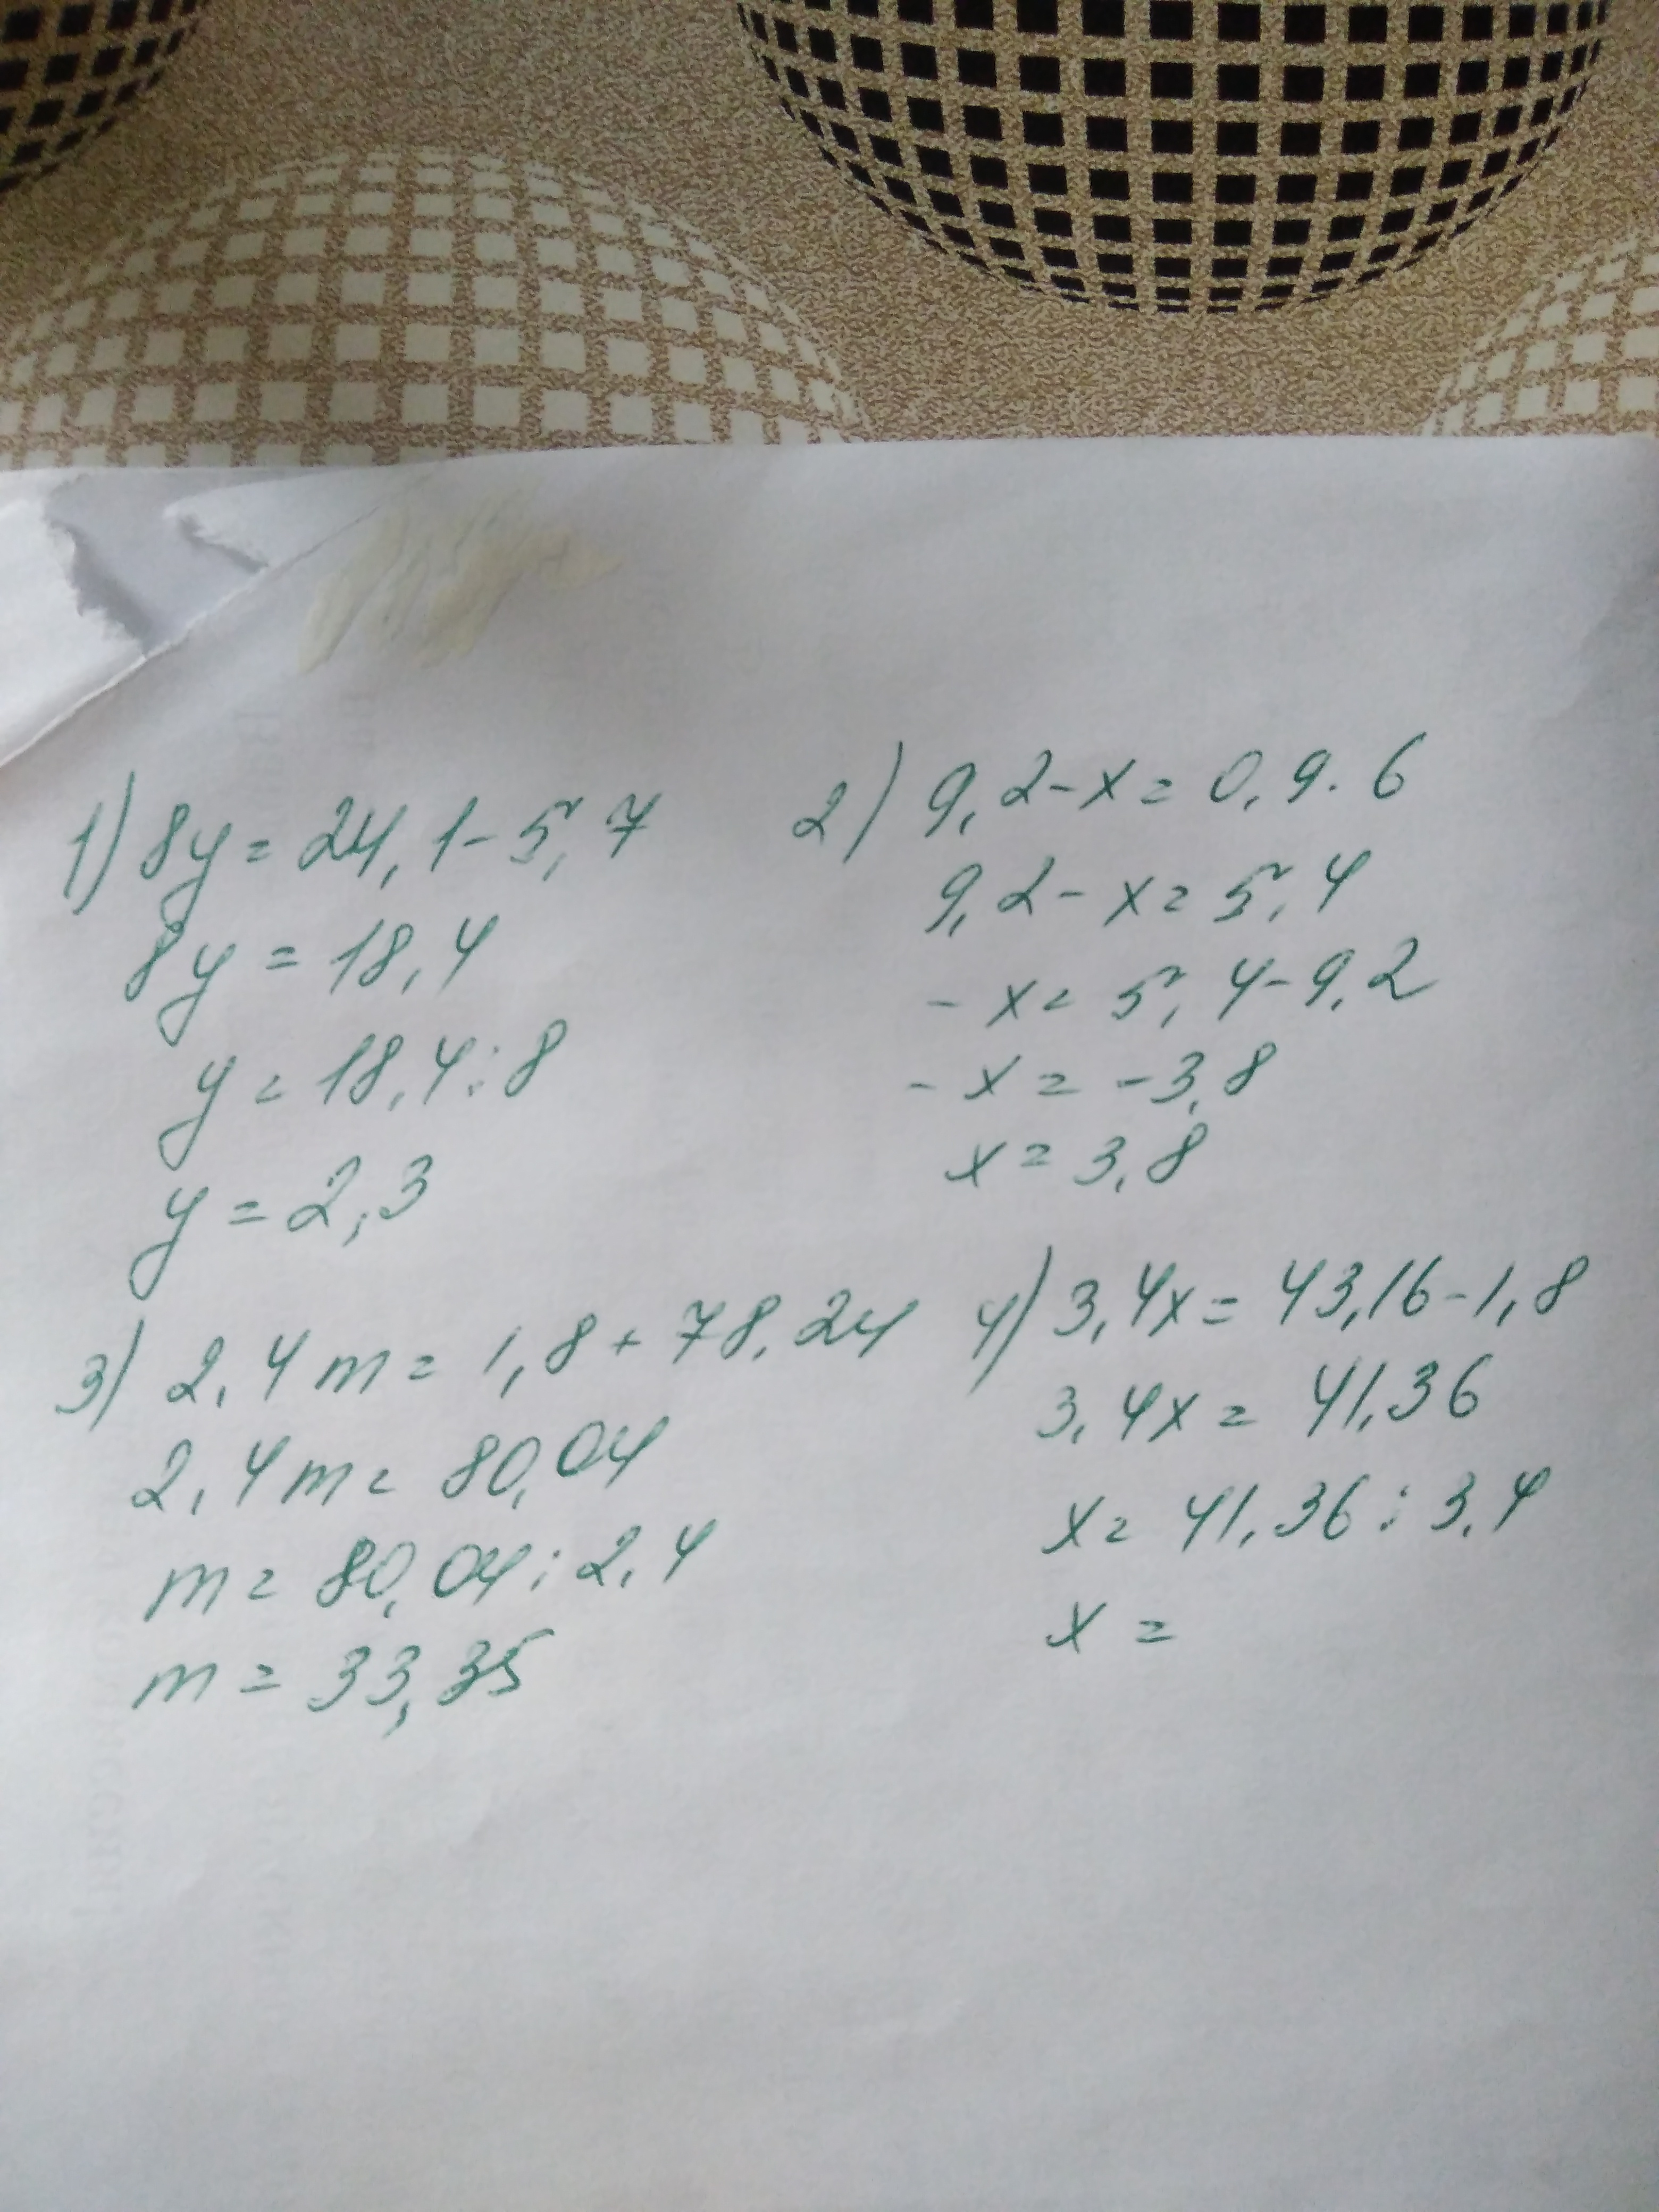 1) 8y = 24,1 - 5,7
8y = 18,4
y = 18,4 : 8
y = 2,3
2) 9,2 - x = 0,9 · 6
9,2 - x = 5,4
- x = 5,4 - 9,2
- x = - 3,8
x = 3,8
3) 2,4 m = 1,8 + 78,24
2,4 m = 80,04
m = 80,04 : 2,4
m = 33,35
4) 3,4x = 43,16 - 1,8
3,4x = 41,36
x = 41,36 : 3,4
x =